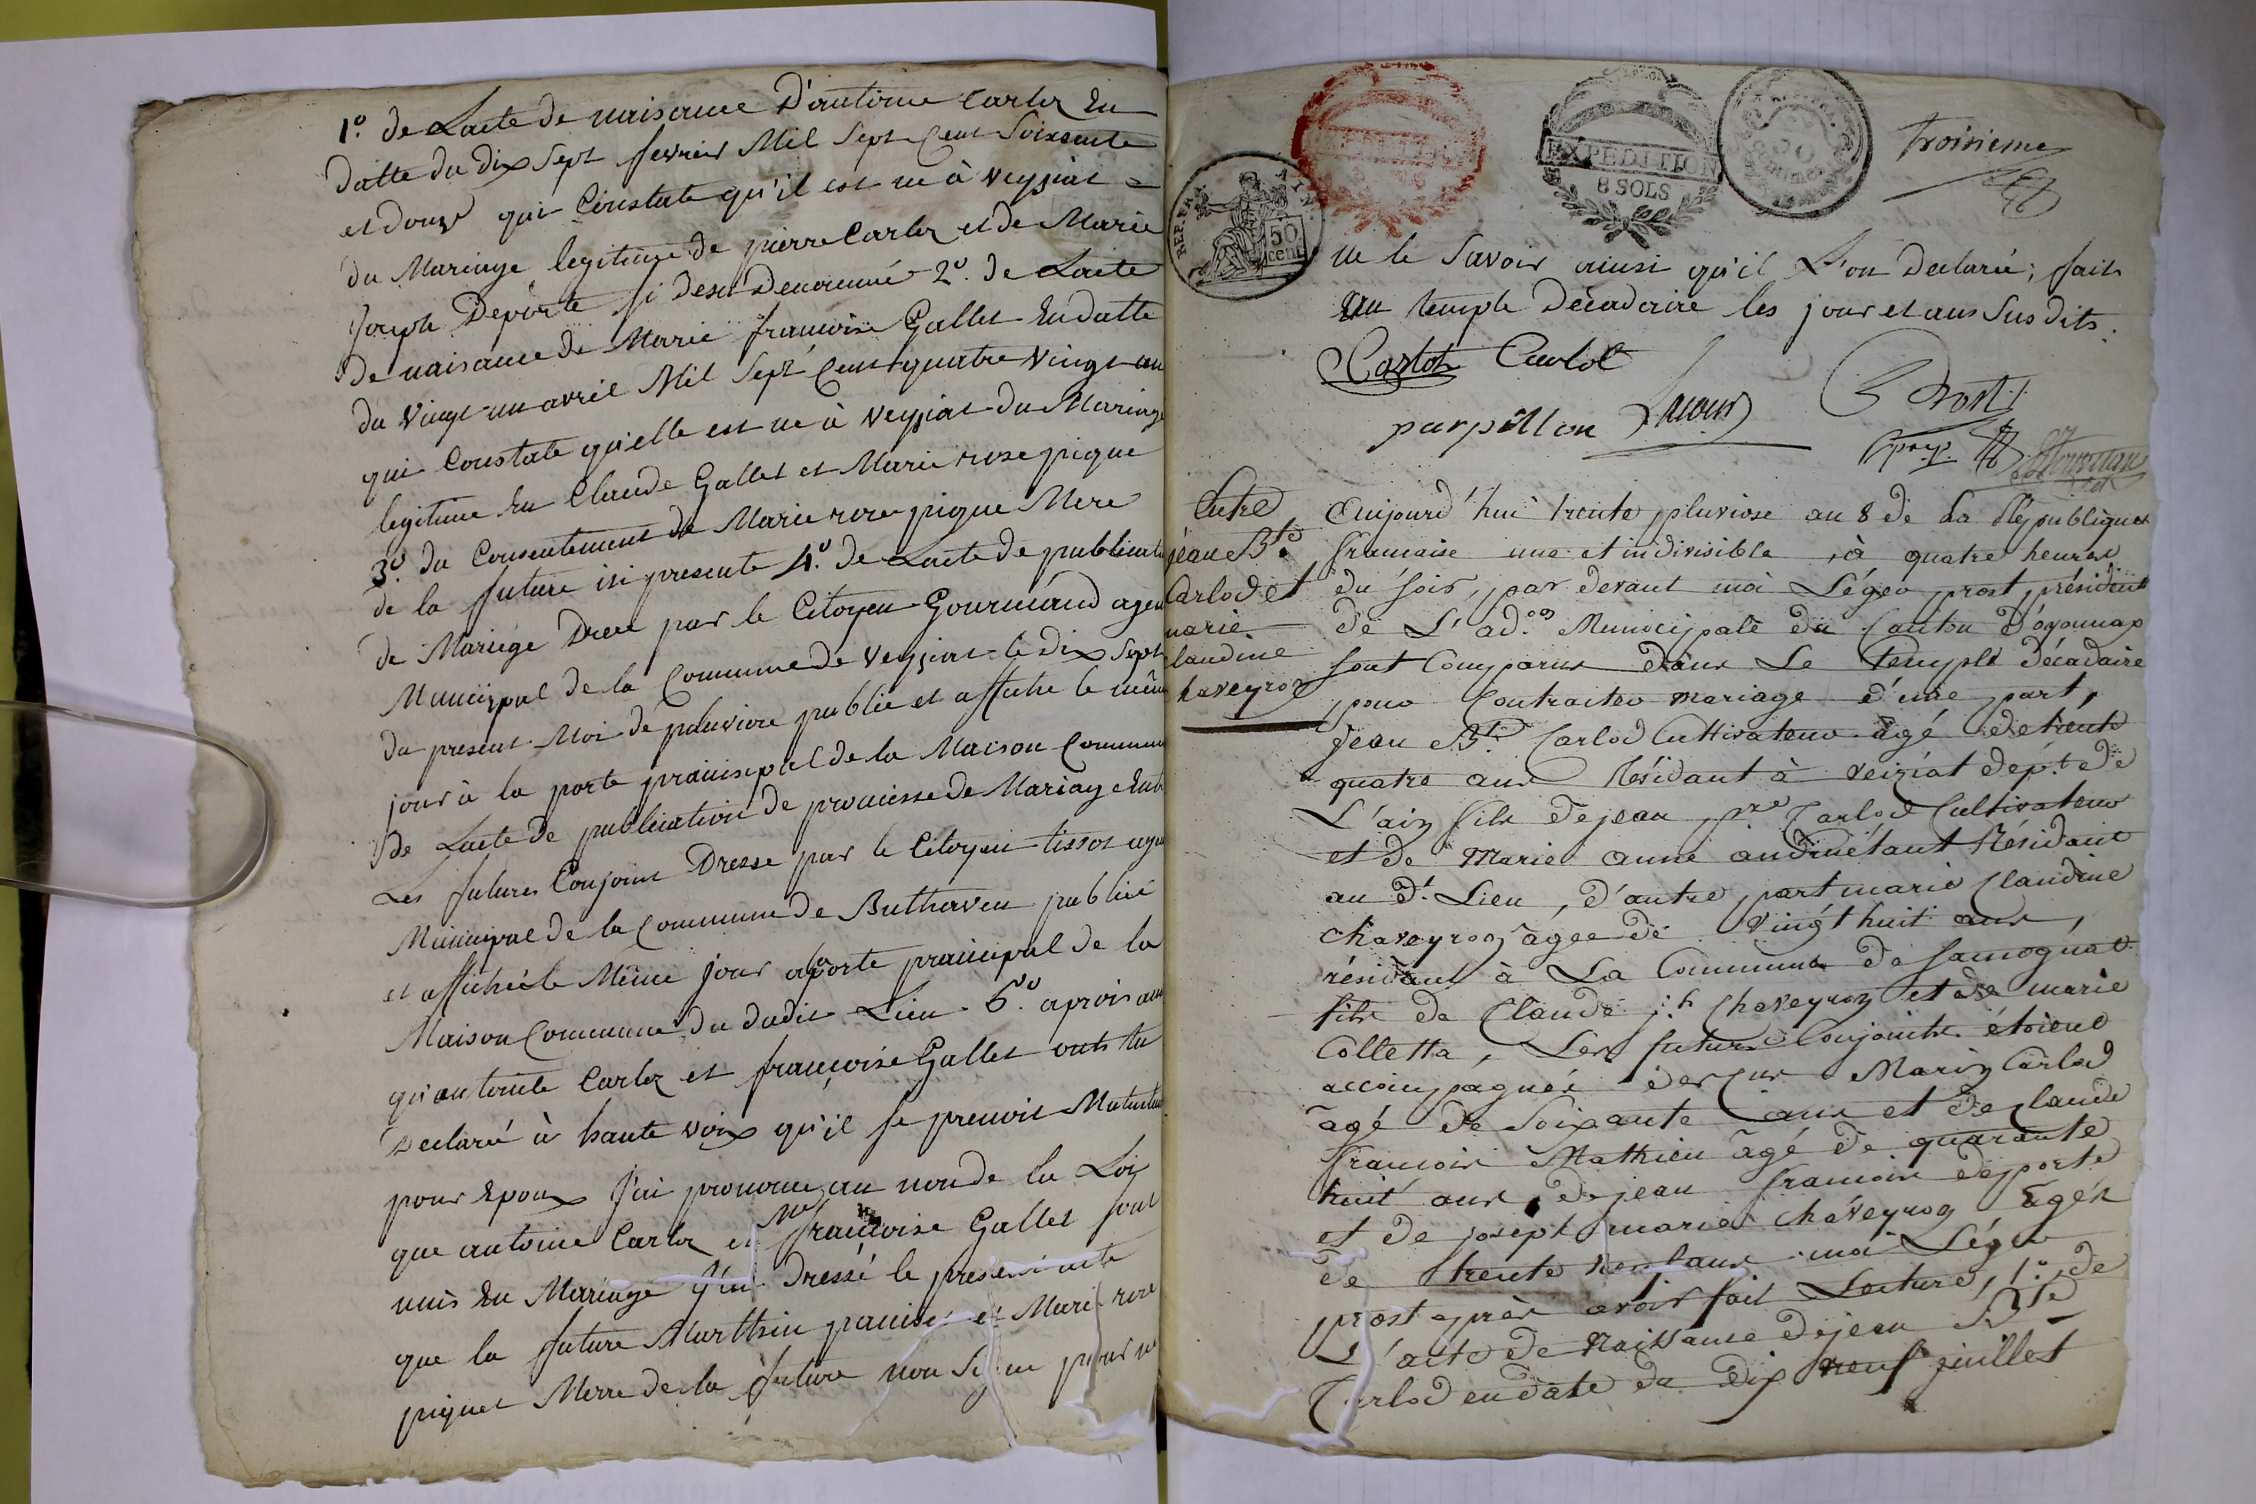 1º. de Lacte de naisance D'antoine Carloz En
datte du dix Sept fevrier Mil Sept Cent Soixente
et douze qui Constate qu'il est ne à veyziat
du Mariage legitime de pierre Carloz et de Marie
Joseph Deporte si desù Denommé 2º. de Lacte
de naisance de Marie francoise Gallet En datte
du vingt un avril Mil Sept Cent quatre vingt un
qui Constate qu'elle est ne à veyziat du Mariage
legitime En Claude Gallet et Marie rose pique
3º. du Consentement de Marie rose pique Mere
de la future isi presente 4º. de Lacte de publication
de Mariége Dreee par le Citoyen Gourmand agent
Municipal de la Commune de veyziat le dix Sept
du present Moi de pluviore publié et affiche le même
jour à la porte prainsipal de la Maison Commune
de Lacte de publication de promesse de Mariage Entre
Les futures Conjoint Dresse par le Citoyen tissot agent
Municipal de la Commune de Buthaven publié
et affichéele Même jour alaporte prainsipal de la
Maison Commune du dudit Lieu 6º. aprois avoir
qu'antoinle Carloz et françoise Gallet ont tu
Declaré à haute voix qu'il se prenoit Mutuelement
pour Epoux J'ai prononce au nom de la Loix
que antoine Carloz et Mie francoise Gallet sont
unis En Mariage J'ai Dressé le present acte
que la future Marthin et Marie rose
piquet Merre de la future non Signe pour ne
Troisieme
REP. FRA
50
cent
EXPEDITION
8 SOLS
ne le Savoir ainsi qu'il L'on Declaré; fait
au temple Décadaire les jour et ans Susdits.
Carlot Carlot
parpillon
Prost
prsy.
Entre
jean Bte
Carlod et
marie
Claudine
Chaveyron
Aujourd'hui trente pluviose an 8 de La République
francaise une et indivisible, à quatre heures
du soir, par devant moi Léger prost président
de L'ad.on Municipale du Canton d'oyonnax
sont Comparus dans Le temple décadaire
pour Contracter mariage d'une part,
jean Bte Carlod Cultivateur âgé de trente
quatre ans Résidant à veiziat dép.t de
L'ain fils de jean pre Carlod Cultivateur
et de Marie anne andruétant Résidant
au d.t Lieu, d'autre part marie Claudine
Chaveyron agée de vingt huit ans,
résidant à La Commune de Samognat
fille de Claude j.h Chaveyron et de marie
Colletta, Les futurs Conjoints étoient
accompagnés des Marin Carlod
âgé de Soixante ans et de Claude
francois Mathieu âgé de quarante
huit ans, de jean francois deporte
et de joseph marie Chaveyron âgés
de trente moi Léger
prost après avoir fait Lecture, 1º. de
L'acte de Naissance de jean Bte
Carlod en date du dix neuf juillet